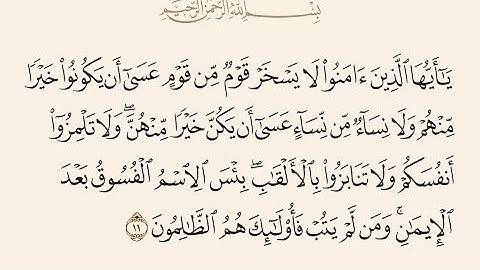 بِسْمِ اللَّهِ الرَّحْمَٰنِ الرَّحِيمِ
يَـٰٓأَيُّهَا ٱلَّذِينَ ءَامَنُوا۟ لَا يَسْخَرْ قَوْمٌ مِّن قَوْمٍ عَسَىٰٓ أَن يَكُونُوا۟ خَيْرًا
مِّنْهُمْ وَلَا نِسَآءٌ مِّن نِّسَآءٍ عَسَىٰٓ أَن يَكُنَّ خَيْرًا مِّنْهُنَّ ۖ وَلَا تَلْمِزُوٓا۟
أَنفُسَكُمْ وَلَا تَنَابَزُوا۟ بِٱلْأَلْقَـٰبِ ۖ بِئْسَ ٱلِٱسْمُ ٱلْفُسُوقُ بَعْدَ
ٱلْإِيمَـٰنِ ۚ وَمَن لَّمْ يَتُبْ فَأُو۟لَـٰٓئِكَ هُمُ ٱلظَّـٰلِمُونَ ١١